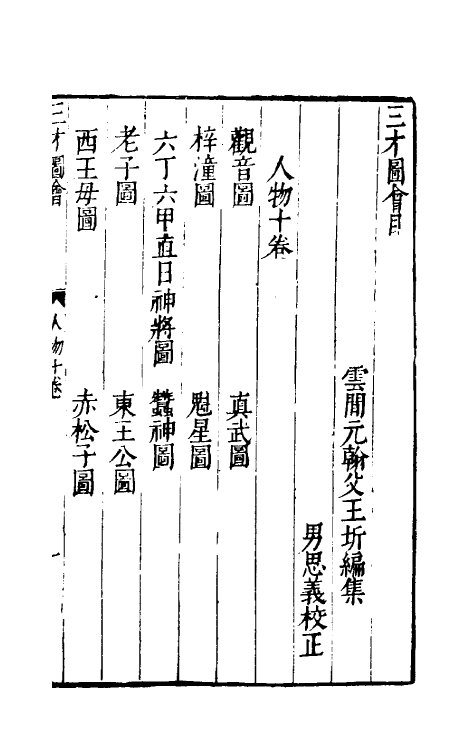 三才圖會目
雲間元翰父王圻編集
男思義校正
人物十卷
觀音圖　真武圖
梓潼圖　魁星圖
六丁六甲直日神將圖　蠶神圖
老子圖　東王公圖
西王母圖　赤松子圖
三才圖會　人物十卷　一